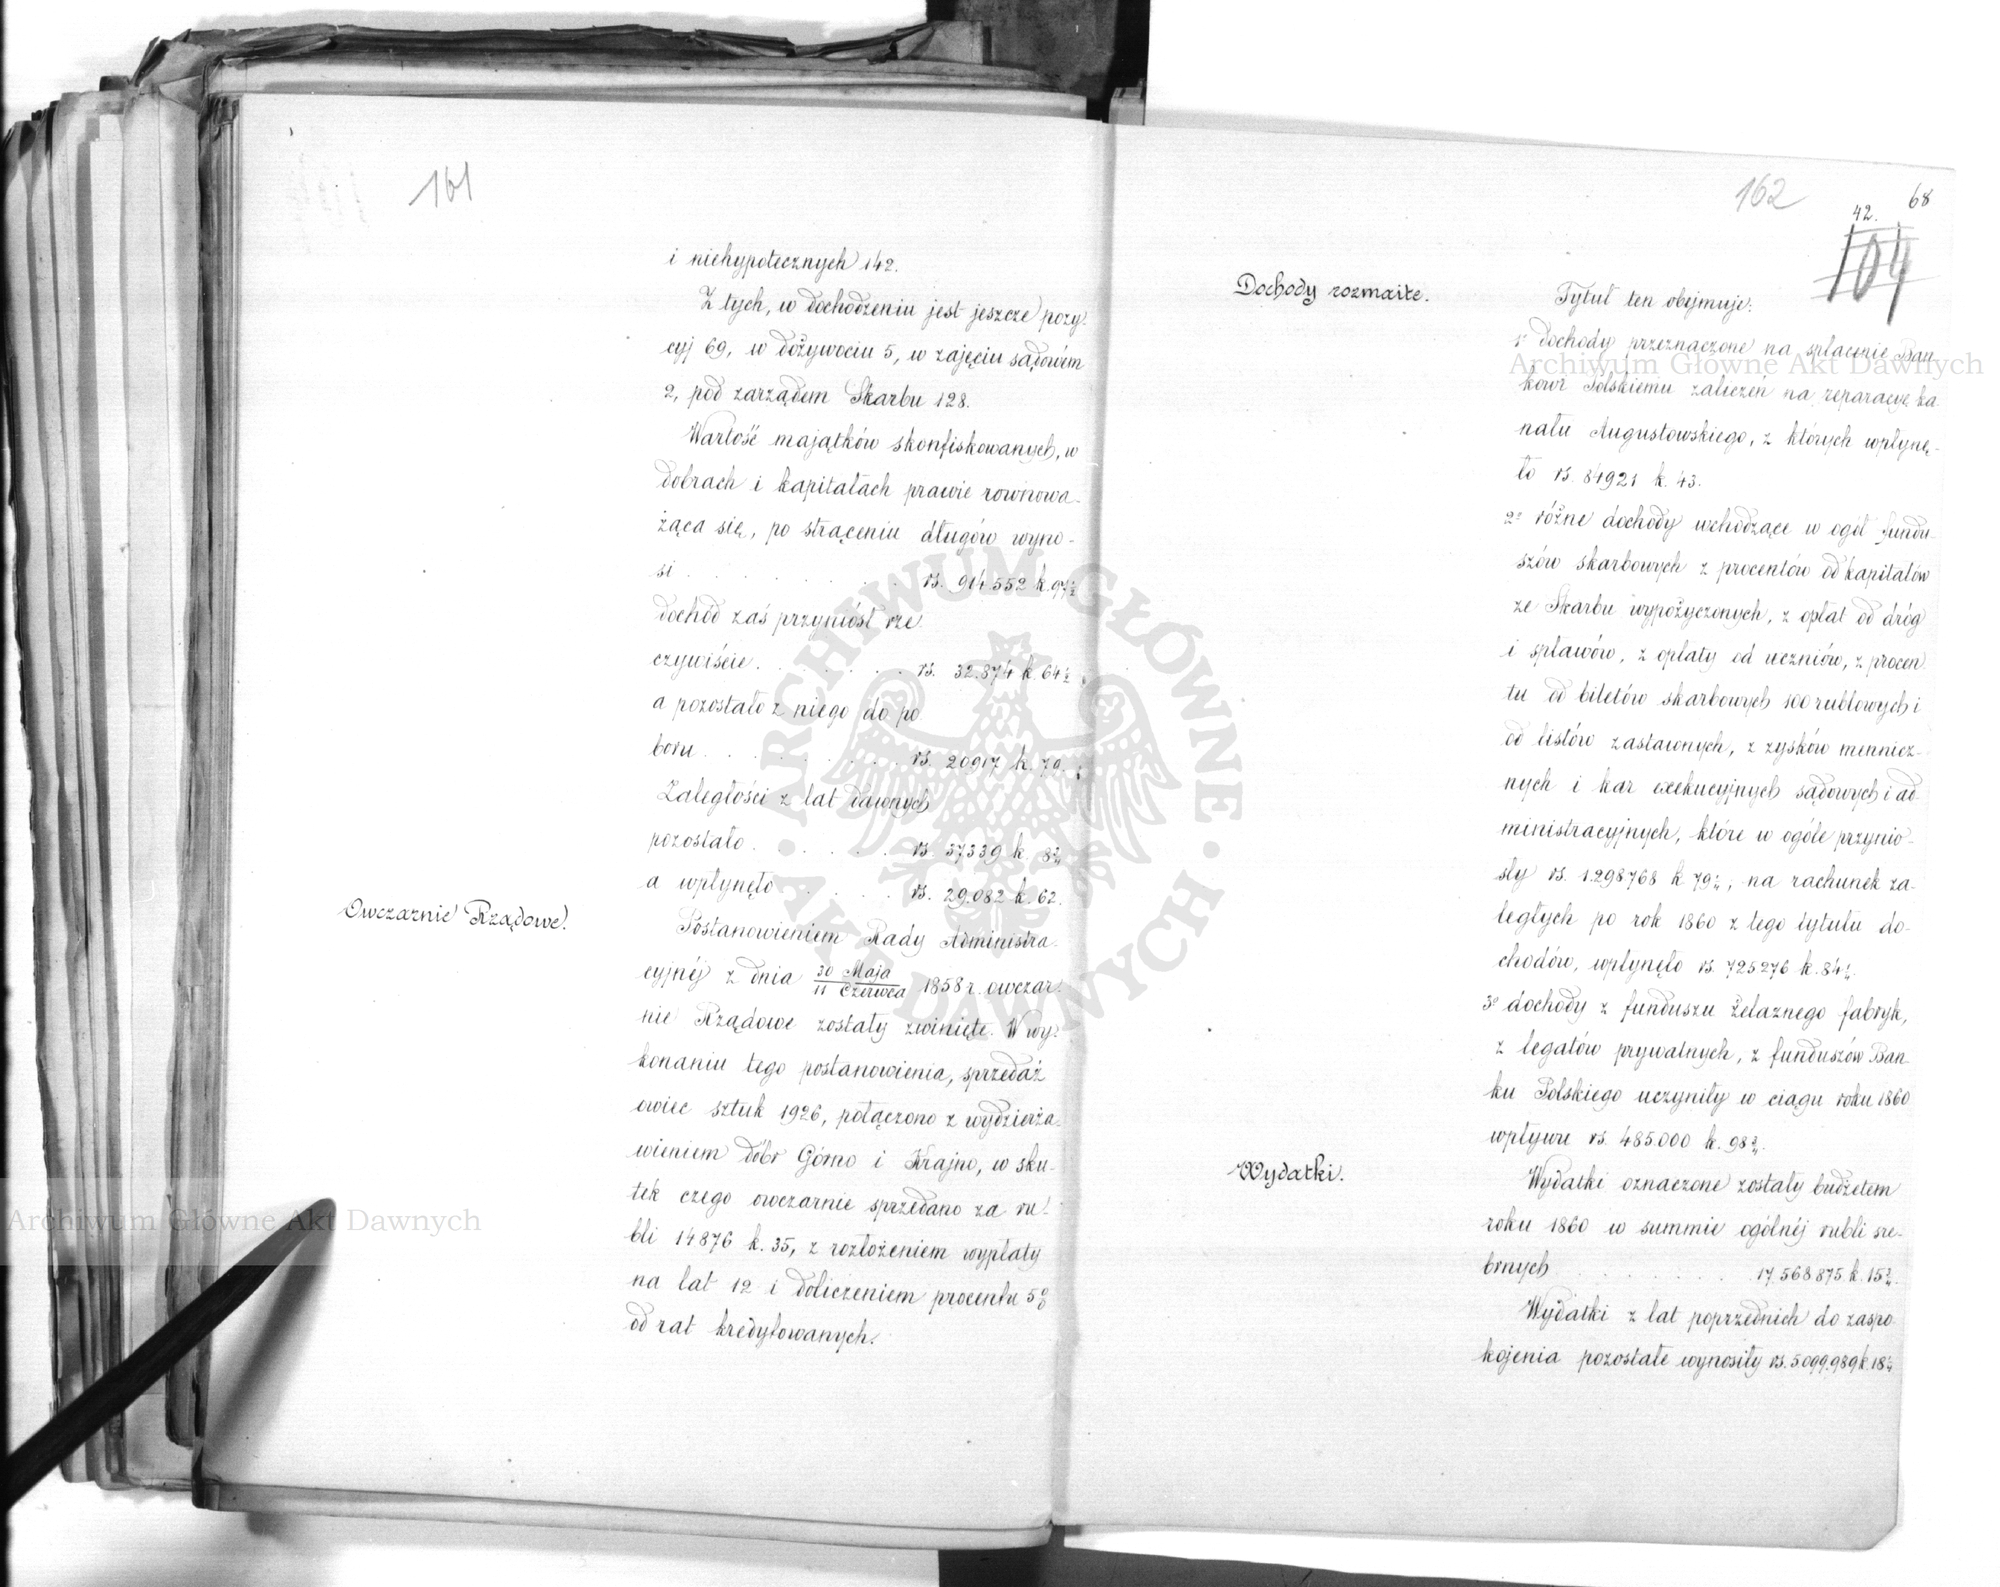 161
i niehypotecznych 142.
Z tych, w dochodzeniu jest jeszcze pozy-
cyj 69, w dożywociu 5, w zajęciu sądowém
2, pod zarządem Skarbu 128.
Wartość majątków skonfiskowanych, w
dobrach i kapitałach prawie równowa-
żąca się, po strąceniu długów wyno-
si . . . . . . . . . rs. 914552 k. 97½
dochód zaś przyniósł rze-
czywiście . . . . . . rs. 32.874 k. 64½
a pozostało z niego do po-
boru . . . . . . . . rs. 20917 k. 70.
Zaległości z lat dawnych
pozostało . . . . . . rs. 37339 k. 8¾
a wpłynęło . . . . rs. 29.082 k. 62.
Owczarnie Rządowe.
Postanowieniem Rady Administra-
cyjnéj z dnia 30 Maja / 11 Czerwca 1858 r. owczar-
nie Rządowe zostały zwinięte. W wy-
konaniu tego postanowienia, sprzedaż
owiec sztuk 1926, połączono z wydzierża-
wieniem dóbr Górno i Krajno, w sku-
tek czego owczarnie sprzedano za ru-
bli 14876 k. 35, z rozłożeniem wypłaty
na lat 12 i doliczeniem procentu 5%
od rat kredytowanych.
162
68
42.
104
Dochody rozmaite.
Tytuł ten obejmuje:
1º dochody przeznaczone na spłacenie Ban-
kowi Polskiemu zaliczeń na reparacyę ka-
nału Augustowskiego, z których wpłynę-
ło rs. 84921 k. 43.
2º różne dochody wchodzące w ogół fundu-
szów skarbowych z procentów od kapitałów
ze Skarbu wypożyczonych, z opłat od dróg
i spławów, z opłaty od uczniów, z procen-
tu od biletów skarbowych 100 rublowych i
od listów zastawnych, z zysków mennicz-
nych i kar exekucyjnych sądowych i ad-
ministracyjnych, które w ogóle przynio-
sły rs. 1.298768 k. 79½, na rachunek za-
ległych po rok 1860 z tego tytułu do-
chodów, wpłynęło rs. 725276 k. 84½.
3º dochody z funduszu żelaznego fabryk,
z legatów prywatnych, z funduszów Ban-
ku Polskiego uczyniły w ciągu roku 1860
wpływu rs. 485.000 k. 98¾.
Wydatki.
Wydatki oznaczone zostały budżetem
roku 1860 w summie ogólnéj rubli sre-
brnych . . . . . . . 17.568875. k. 15¾.
Wydatki z lat poprzednich do zaspo-
kojenia pozostałe wynosiły rs. 5.099.989 k. 18¼
Archiwum Główne Akt Dawnych
Archiwum Główne Akt Dawnych
ARCHIWUM GŁÓWNE · AKT DAWNYCH ·